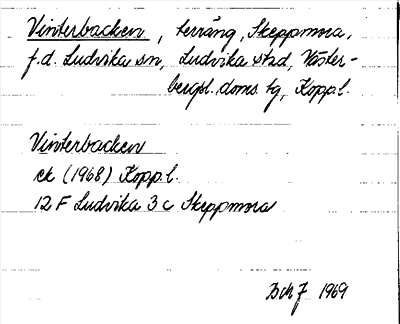 Vinterbacken, terräng, Skeppmora,
f.d. Ludvika sn, Ludvika stad, Väster-
bergsl. doms. tg, Koppl.
Vinterbacken
ek (1968) Koppl.
12 F Ludvika 3 c Skeppmora
1969